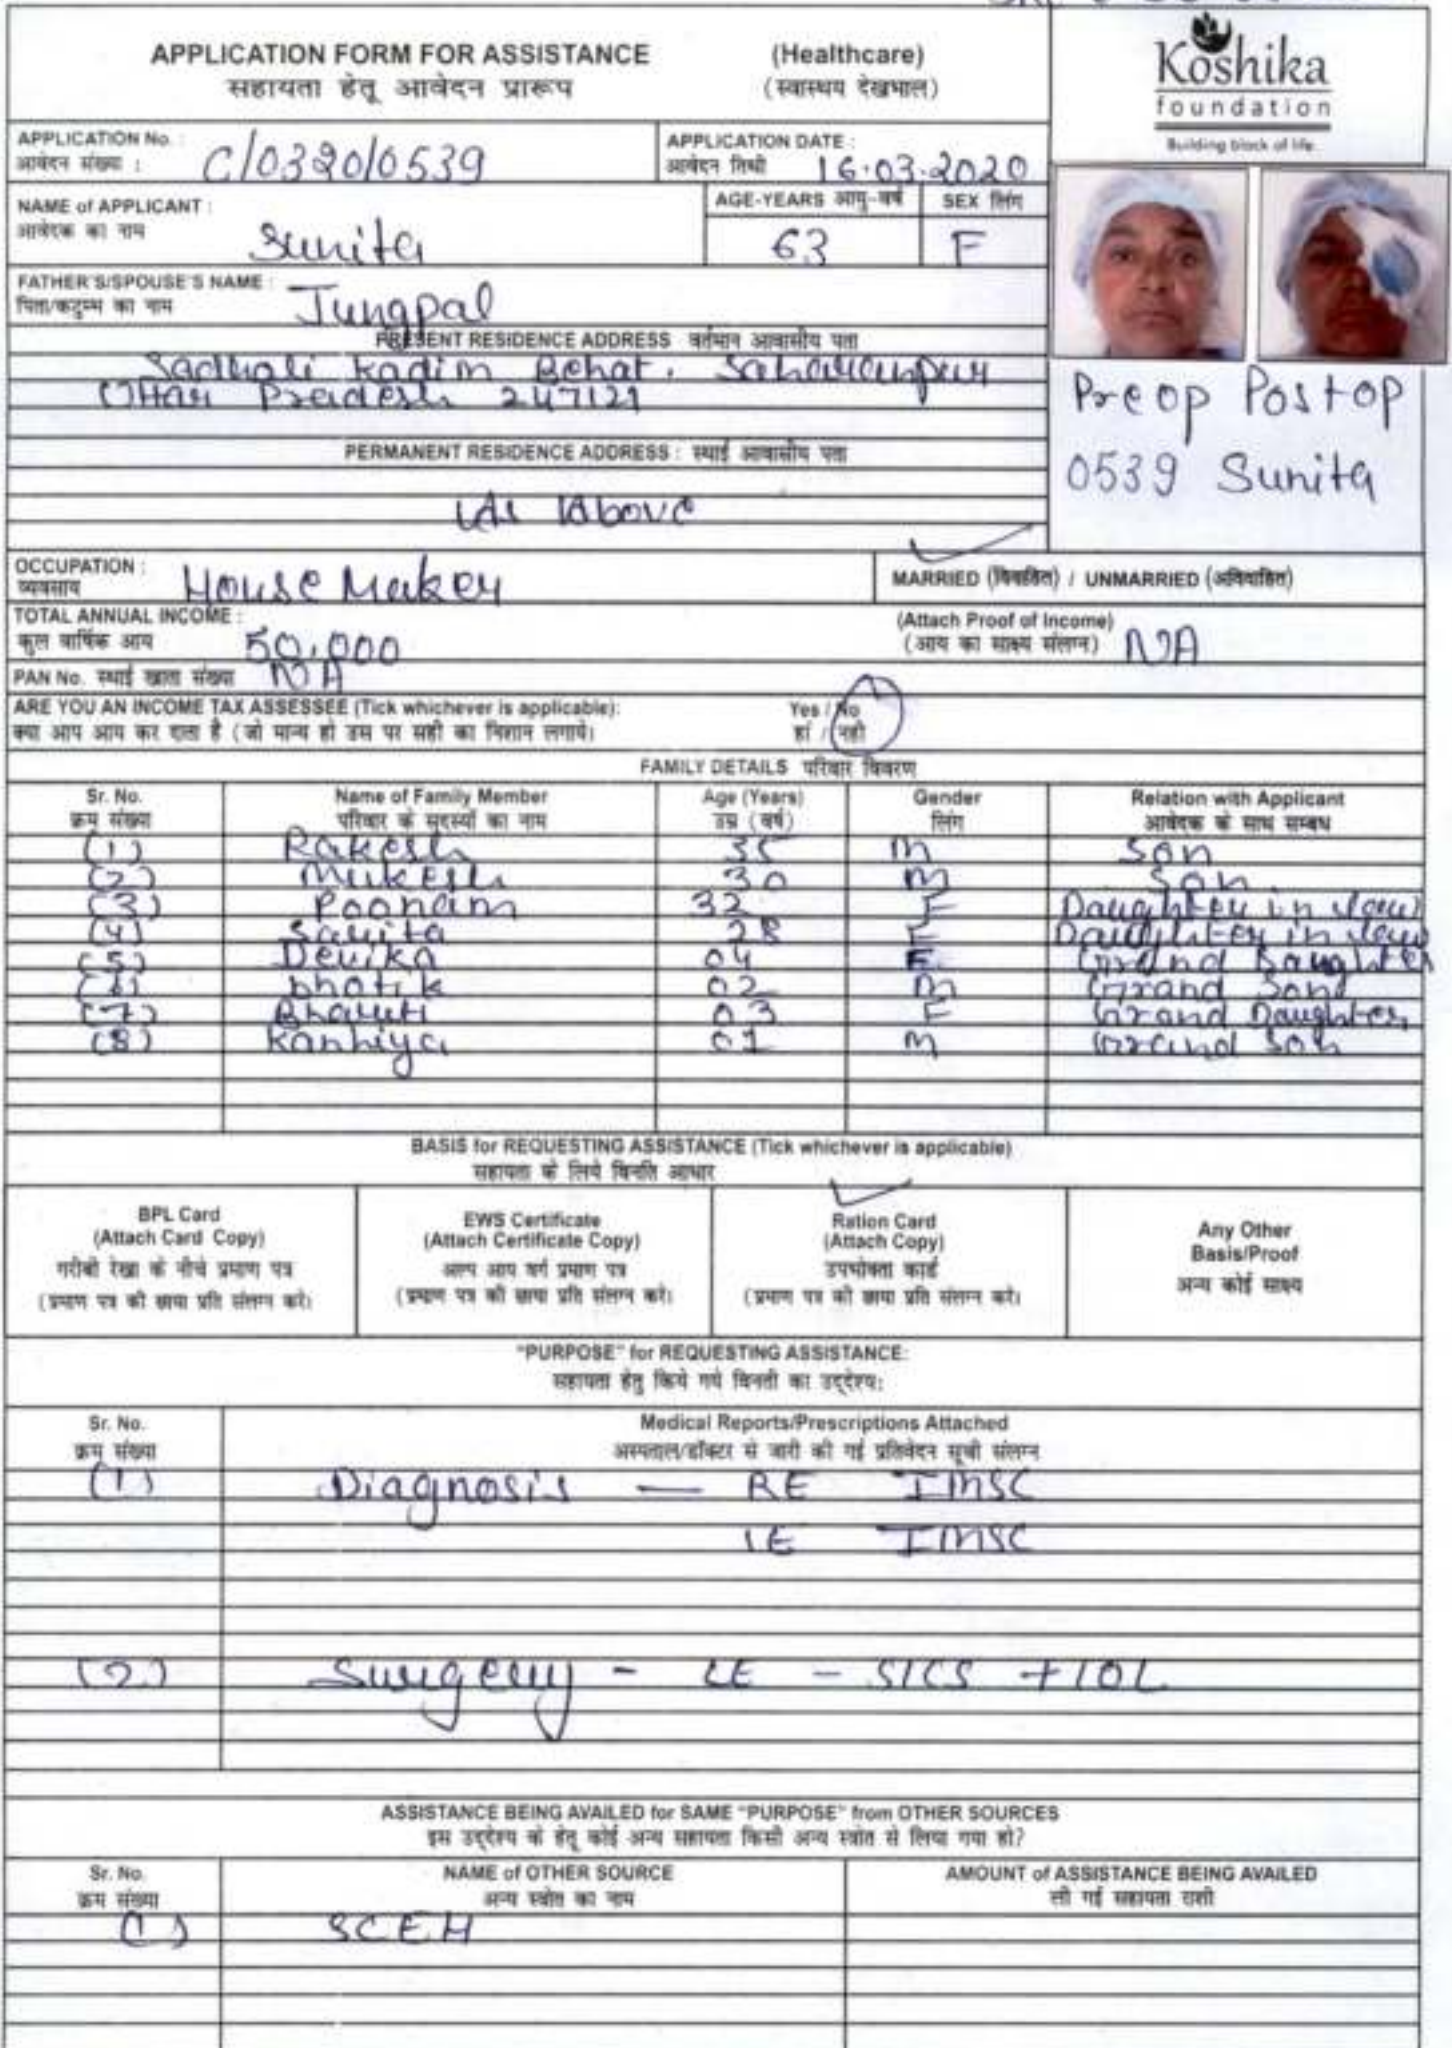 APPLICATION FORM FOR ASSISTANCE (Healthcare)
सहायता हेतू आवेदन प्रारूप (स्वास्थय देखभाल)
Koshika
foundation
Building block of life.
APPLICATION No. : C/0320/0539
आवेदन संख्या :
APPLICATION DATE : 16.03.2020
आवेदन तिथी
NAME of APPLICANT : Sunita
आवेदक का नाम
AGE-YEARS आयु-वर्ष 63
SEX लिंग F
FATHER'S/SPOUSE'S NAME : Jungpal
पिता/कटुम्भ का नाम
PRESENT RESIDENCE ADDRESS वर्तमान आवासीय पता
Sadhali Kadim Behat, Saharanpur
Uttar Pradesh 247121
Preop Postop
0539 Sunita
PERMANENT RESIDENCE ADDRESS : स्थाई आवासीय पता
As Above
OCCUPATION : House Maker
व्यवसाय
MARRIED (विवाहित) / UNMARRIED (अविवाहित)
TOTAL ANNUAL INCOME : 50,000
कुल वार्षिक आय
(Attach Proof of Income) NA
(आय का साक्ष्य संलग्न)
PAN No. स्थाई खाता संख्या NA
ARE YOU AN INCOME TAX ASSESSEE (Tick whichever is applicable): Yes / No
क्या आप आय कर दाता है (जो मान्य हो उस पर सही का निशान लगाये) हां / नही
FAMILY DETAILS परिवार विवरण
Sr. No. Name of Family Member Age (Years) Gender Relation with Applicant
क्रम संख्या परिवार के सदस्यों का नाम उम्र (वर्ष) लिंग आवेदक के साथ सम्बध
(1) Rakesh 35 M Son
(2) Mukesh 30 M Son
(3) Poonam 32 F Daughter in law
(4) Sarita 28 F Daughter in law
(5) Devika 04 F Grand Daughter
(6) bhatik 02 M Grand Son
(7) Bharti 03 F Grand Daughter
(8) Kanhiya 01 M Grand Son
BASIS for REQUESTING ASSISTANCE (Tick whichever is applicable)
सहायता के लिये विनति आधार
BPL Card
(Attach Card Copy)
गरीबी रेखा के नीचे प्रमाण पत्र
(प्रमाण पत्र की छाया प्रति संलग्न करे)
EWS Certificate
(Attach Certificate Copy)
अल्प आय वर्ग प्रमाण पत्र
(प्रमाण पत्र की छाया प्रति संलग्न करे)
Ration Card
(Attach Copy)
उपभोक्ता कार्ड
(प्रमाण पत्र की छाया प्रति संलग्न करे)
Any Other
Basis/Proof
अन्य कोई साक्ष्य
"PURPOSE" for REQUESTING ASSISTANCE:
सहायता हेतु किये गये विनती का उद्देश्य:
Sr. No. Medical Reports/Prescriptions Attached
क्रम संख्या अस्पताल/डॉक्टर से जारी की गई प्रतिवेदन सूची संलग्न
(1) Diagnosis — RE IMSC
LE IMSC
(2) Surgery - LE - SICS + IOL
ASSISTANCE BEING AVAILED for SAME "PURPOSE" from OTHER SOURCES
इस उद्देश्य के हेतू कोई अन्य सहायता किसी अन्य स्त्रोत से लिया गया हो?
Sr. No. NAME of OTHER SOURCE AMOUNT of ASSISTANCE BEING AVAILED
क्रम संख्या अन्य स्त्रोत का नाम ली गई सहायता राशी
(1) SCEH